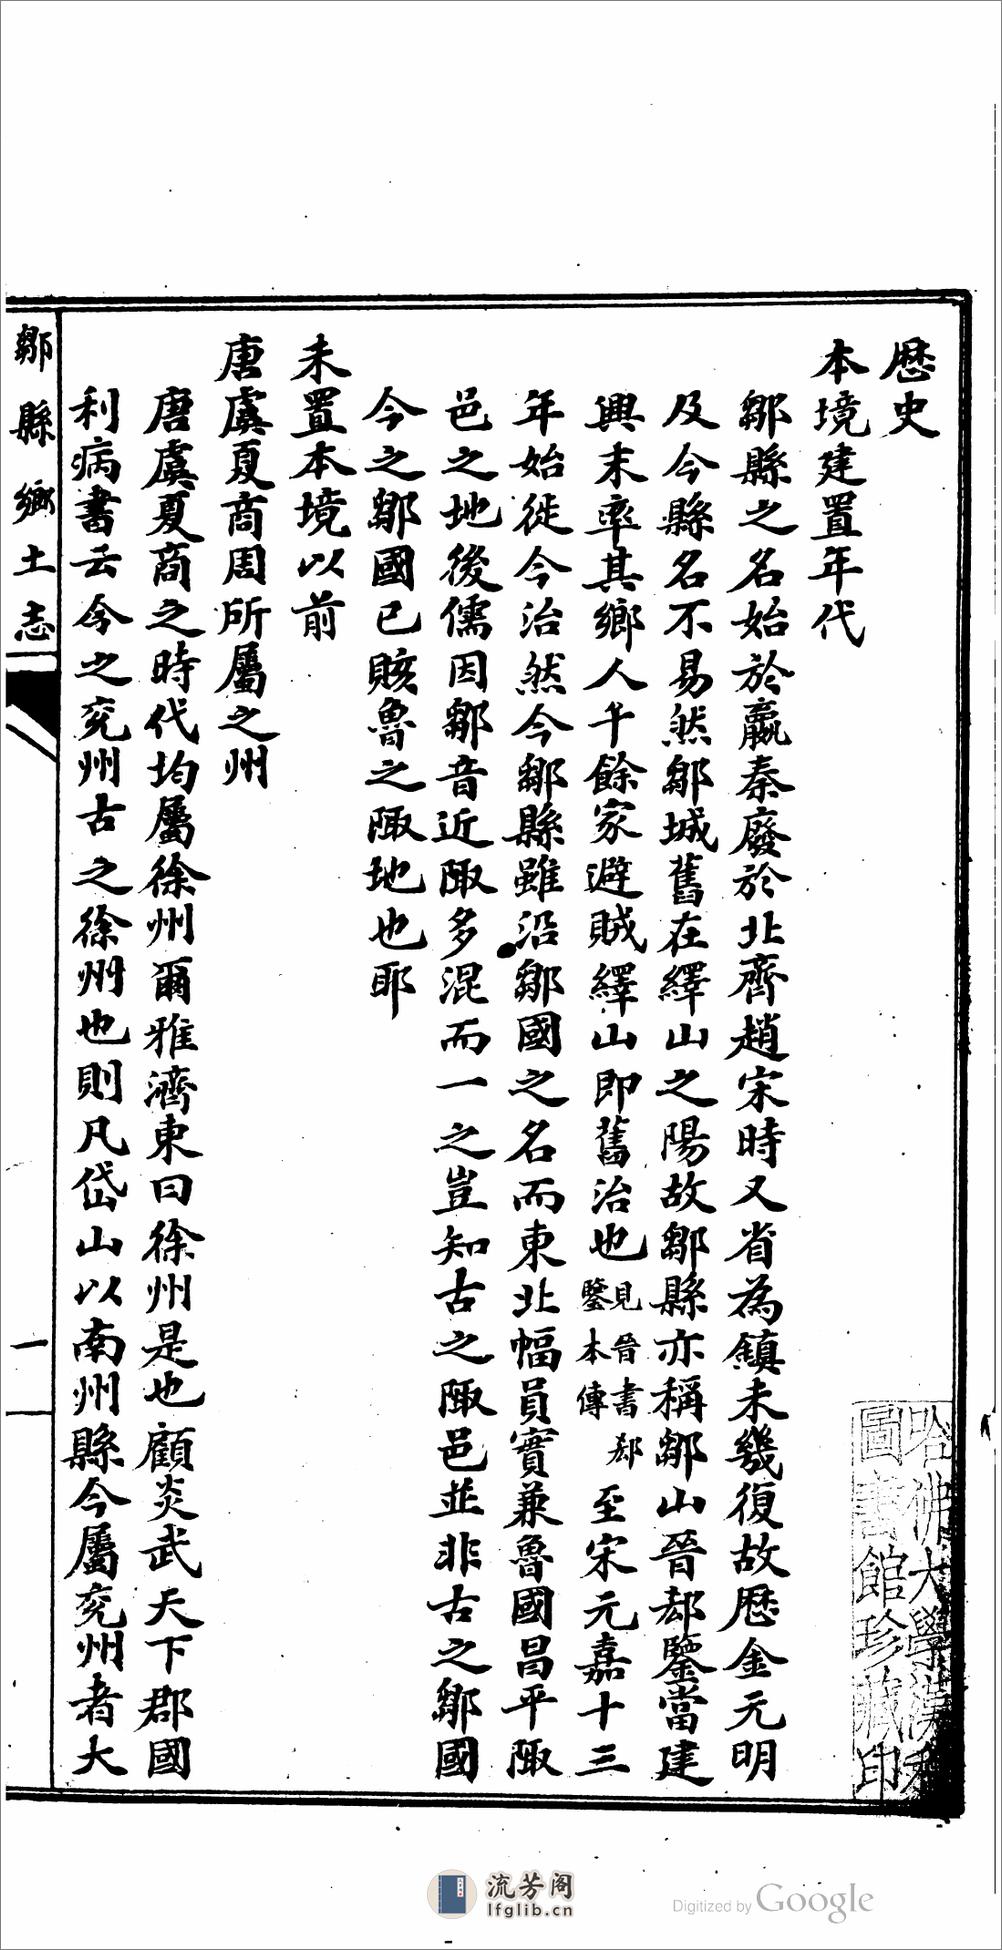 歷史
本境建置年代
鄒縣之名始於嬴秦廢於北齊趙宋時又省為鎮未幾復故歷金元明
及今縣名不易然鄒城舊在繹山之陽故鄒縣亦稱鄒山晉郄鑒當建
興末率其鄉人千餘家避賊繹山即舊治也見晉書郄鑒本傳至宋元嘉十三
年始徙今治然今鄒縣雖沿鄒國之名而東北幅員實兼魯國昌平陬
邑之地後儒因鄒音近陬多混而一之豈知古之陬邑並非古之鄒國
今之鄒國已賅魯之陬地也耶
未置本境以前
唐虞夏商周所屬之州
唐虞夏商之時代均屬徐州爾雅濟東曰徐州是也顧炎武天下郡國
利病書云今之兖州古之徐州也則凡岱山以南州縣今屬兖州者大
鄒縣鄉土志
一
哈佛大學漢和
圖書館珍藏印
流芳阁
lfglib.cn
Digitized by Google